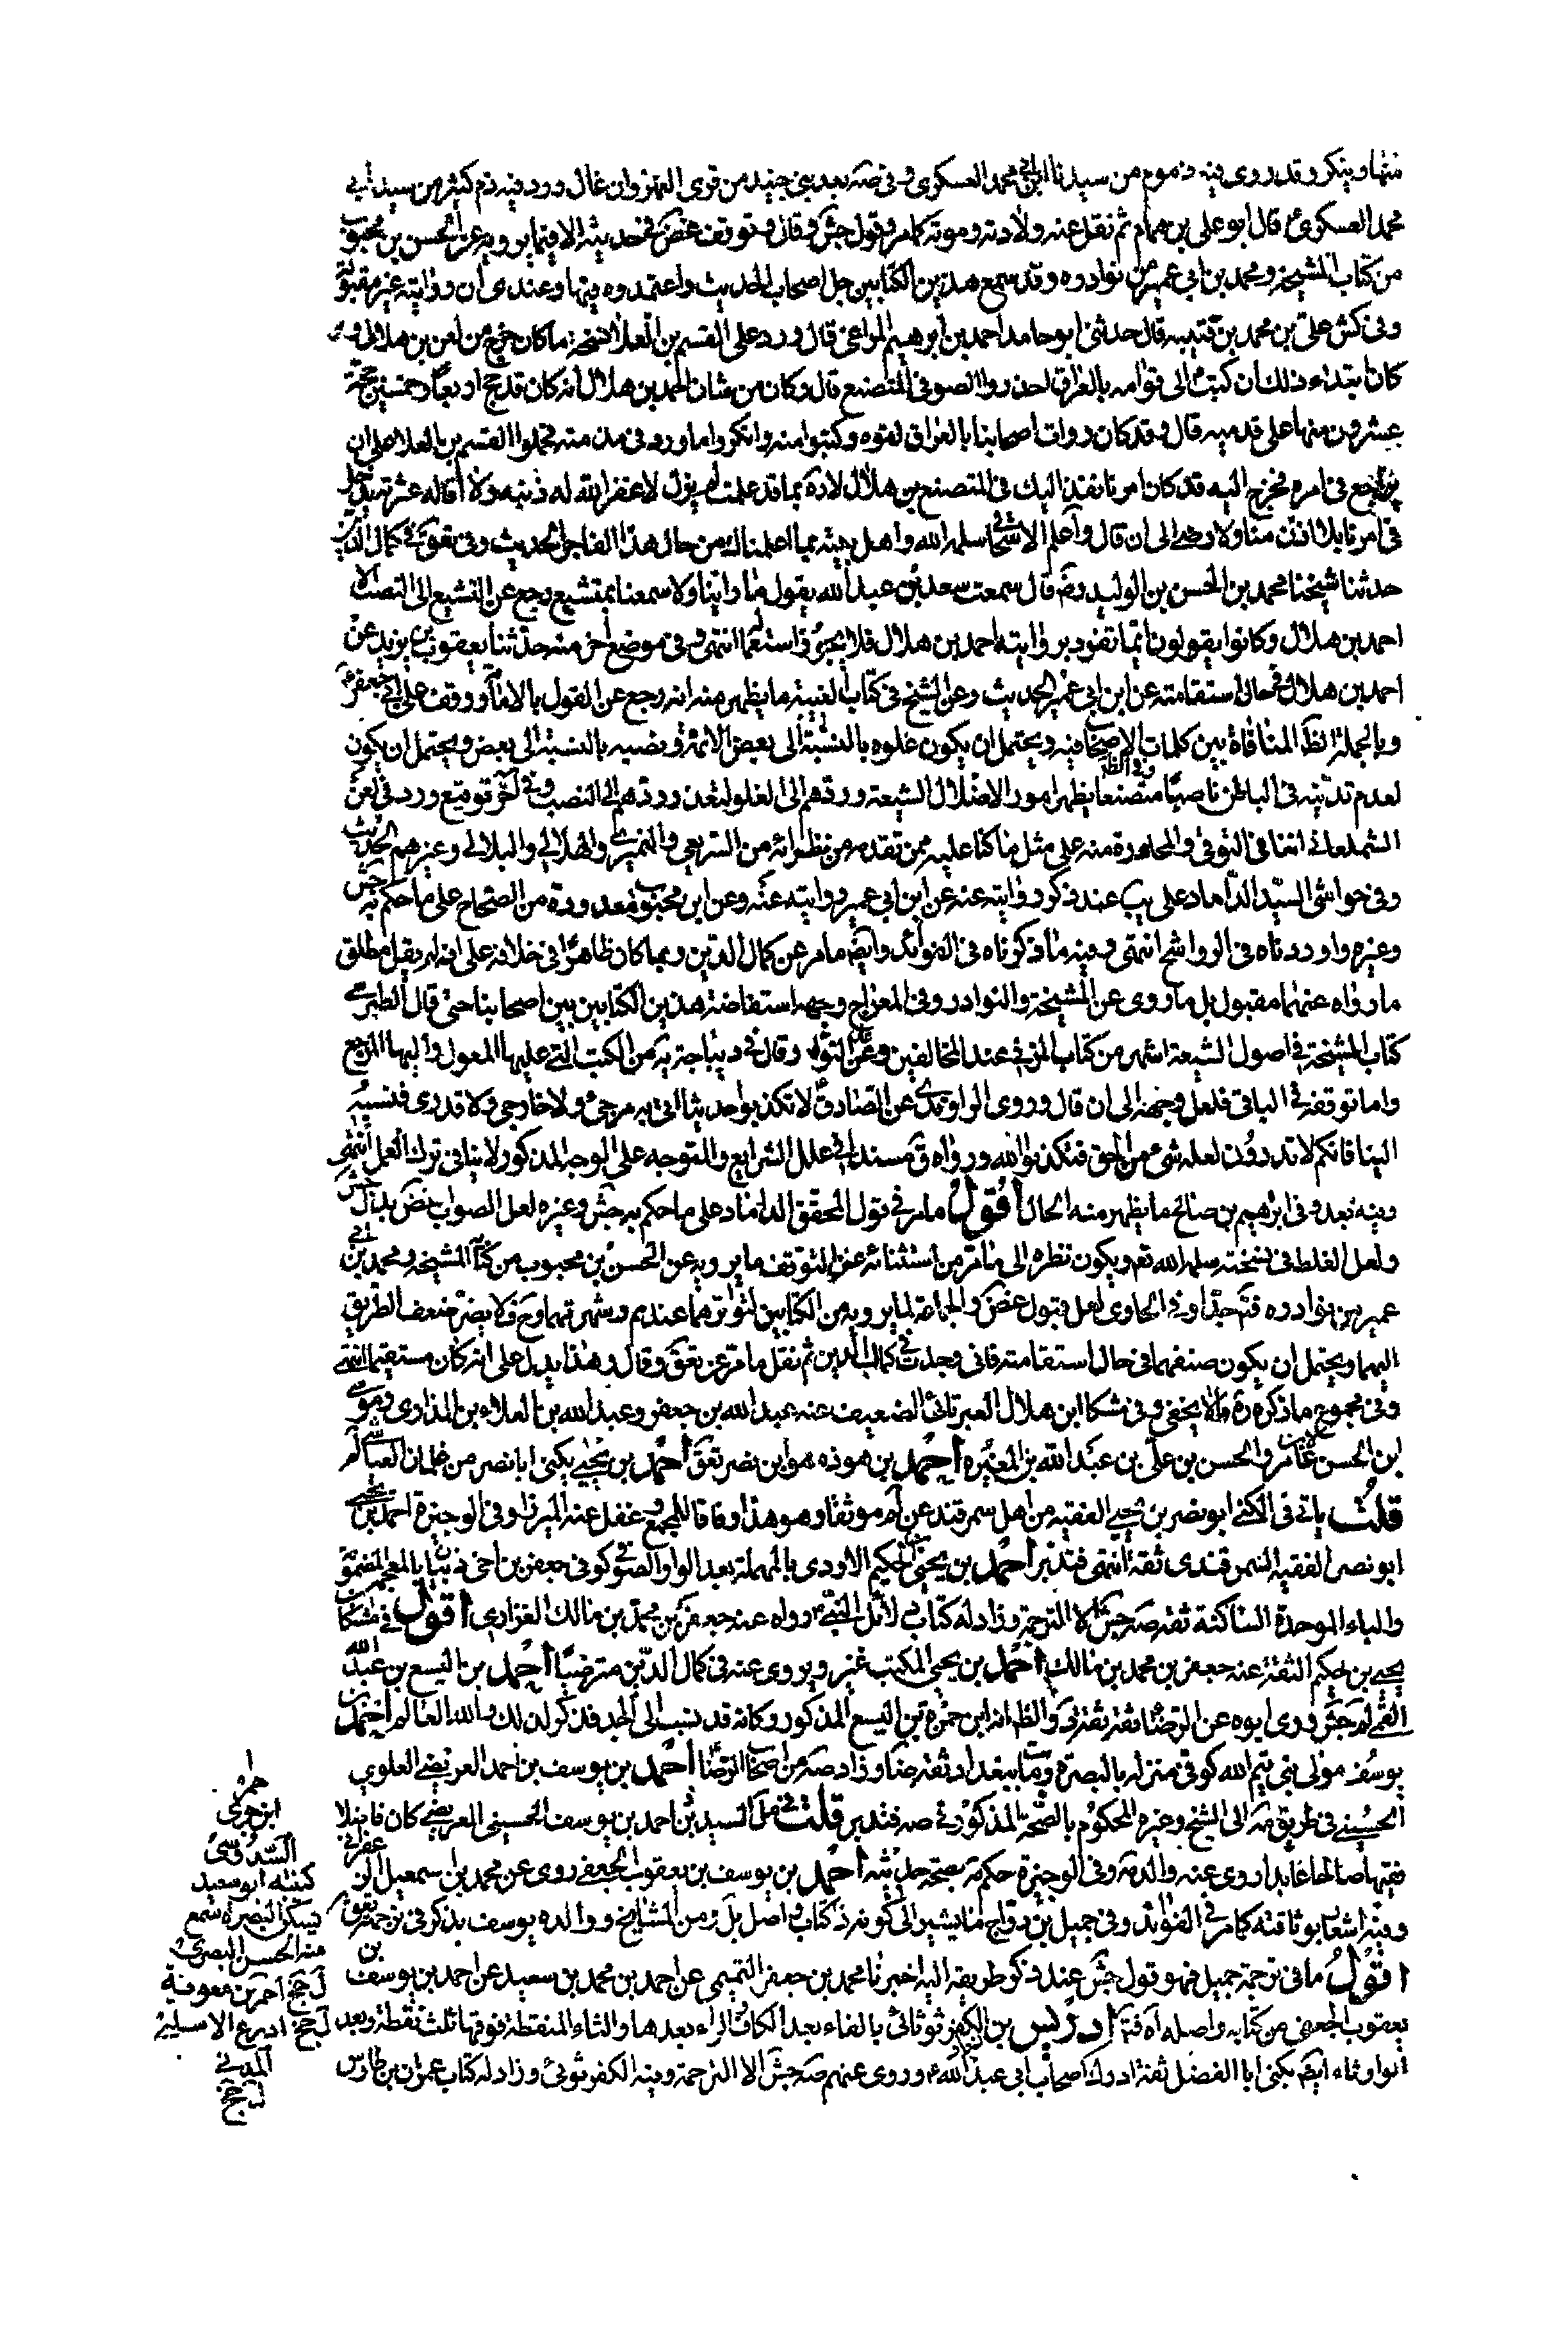 منها وينكر وقد روى فيه ذموم من سيدنا ابي محمد العسكري وفي صه بعد بني جنيد من قرى النهروان غال ورد فيه ذم كثير من سيدنا ابي
محمد العسكري قال ابو علي بن همام ثم نقل عنه ولادته وموته كما مر وقول جش وقال وتوقف غض في حديثه الا فيما يرويه عن الحسن بن محبوب
من كتاب المشيخة ومحمد بن ابي عمير من نوادره وقد سمع هذين الكتابين جل اصحاب الحديث واعتمدوه فيها وعندي ان روايته غير مقبولة
وفي كش علي بن محمد بن قتيبه قال حدثني ابو حامد احمد بن ابرهيم المراغي قال ورد على القسم بن العلا نسخة ما كان خرج من لعن بن هلال و
كان ابتداء ذلك ان كتب الى قوامه بالعراق احذروا الصوفي المتصنع قال وكان من شان احمد بن هلال انه كان قد حج اربعا وخمسين حجة
عشرون منها على قدميه قال وقد كان رواة اصحابنا بالعراق لقوه وكتبوا منه وانكروا ما ورد في مذمته فحملوا القسم بن العلا على ان
يراجع في امره فخرج اليه قد كان امرنا نفذ اليك في المتصنع بن هلال لا ره بما قد علمت لم يزل لا غفر الله له ذنبه ولا اقاله عثرته يدخل
في امرنا بلا اذن منا ولا رضى الى ان قال واعلم الاسحاقي سلمه الله واهل بيته بما اعلمناك من حال هذا الفاجر الحديث وفي تعق في كمال الدين
حدثنا شيخنا محمد بن الحسن بن الوليد رضه قال سمعت سعد بن عبد الله يقول ما راينا ولا سمعنا بمتشيع رجع عن التشيع الى النصب الا
احمد بن هلال وكانوا يقولون انما تفرد بروايته احمد بن هلال فلا يجوز استعماله انتهى وفي موضع اخر منه حدثنا يعقوب بن يزيد عن
احمد بن هلال في حال استقامته عن ابن ابي عمير الحديث وعن الشيخ في كتاب الغيبة ما يظهر منه انه رجع عن القول بالامامة ووقف على ابي جعفر
وبالجملة الظ المنافاة بين كلمات الاصحاب فيه ويحتمل ان يكون غلوه بالنسبة الى بعض الائمة ونصبه بالنسبة الى بعض ويحتمل ان يكون
لعدم تدينه في الباطن ناصبيا وفي الظ متصنعا يظهر امورا لاضلال الشيعة وردهم الى الغلو لبعد ردهم الى النصب وفي اخر توقيع ورد في لعن
الشلمغاني اننا في التوقي والمحاذرة منه على مثل ما كنا عليه ممن تقدمه من نظرائه من الشريعي والنميري والهلالي والبلالي وغيرهم الحديث
وفي حواشي السيد الداماد على يب عند ذكر روايته عنه عن ابن ابي عمير وروايته عنه وعن ابن محبوب معدودة من الصحاح على ما حكم به جش
وغيره واوردناه في الرواشح انتهى وفيه ما ذكرناه في الفوائد وايضا ما مر عن كمال الدين وبما كان ظاهرا في خلافه على انه لم يقبل مطلق
ما رواه عنهما مقبول بل ما روى عن المشيخة والنوادر وفي المعراج وجهه استفاضة هذين الكتابين بين اصحابنا حتى قال الطبرسي
كتاب المشيخة في اصول الشيعة اشهر من كتاب المزني عند المخالفين وقال في ديباجة يه من الكتب التي عليها المعول واليها المرجع
واما توقفه في الباقي فلعل وجهه الى ان قال وروى الراوندي عن الصادق لا تكذبوا حديثا اتى به مرجئ ولا خارجي ولا قدري فنسبه
الينا فانكم لا تدرون لعله شيء من الحق فتكذبوا الله ورواه ق مسندا في علل الشرايع والتوجه على الوجه المذكور لا ينافي ترك العمل انتهى
وفيه بعد وفي ابرهيم بن صالح ما يظهر منه الحال اقول ما مر في قول المحقق الداماد على ما حكم به جش وغيره لعل الصواب غض بدل جش
ولعل الغلط في نسخته سلمه الله تع ويكون نظره الى ما مر من استثنائه عن التوقف ما يرويه عن الحسن بن محبوب من كتاب المشيخة ومحمد بن ابي
عمير من نوادره فتم جدا وفي الحاوي لعل قبول غض والجماعة لما يرويه من الكتابين لتواترهما عندهم وشهرتهما وح فلا يضر ضعف الطريق
اليهما ويحتمل ان يكون صنفهما في حال استقامته فاني وجدت في كمال الدين ثم نقل ما مر عن تعق وقال وهذا يدل على انه كان مستقيما انتهى
وفي مجموع ما ذكره ره ما لا يخفى وفي مشكا ابن هلال العبرتائي الضعيف عنه عبد الله بن جعفر وعبد الله بن العلاء بن المذاري وموسى
ابن الحسن بن عامر والحسن بن علي بن عبد الله بن المغيره احمد بن هوذه هو ابن نصر تعق احمد بن يحيى يكنى ابا نصر من غلمان العياشي لم
قلت ياتي في الكنى ابو نصر بن يحيى الفقيه من اهل سمرقند عن لم موثقا وهو هذا وفاقا للمجمع وغفل عنه الميرزا وفي الوجيزة احمد بن يحيى
ابو نصر الفقيه السمرقندي ثقة انتهى فتدبر احمد بن يحيى بن الحكيم الاودي بالمهملة بعد الواو الصوفي كوفي جعفر بن اخي ذبيان بالمعجمة المضمومة
والباء الموحدة الساكنة ثقة صه جش الا الترجمة وزاد له كتاب دلائل النبي رواه عنه جعفر بن محمد بن مالك الفزاري اقول في مشكا
يحيى بن حكيم الثقة عنه جعفر بن محمد بن مالك احمد بن يحيى المكتب غير ويروي عنه في كمال الدين مترضيا احمد بن اليسع بن عبد الله
القمي له جش روى ابوه عن الرضا ثقة ثقة د والظ انه ابن حمزه بن اليسع المذكور وكانه قد ينسب الى الجد فذكر لذلك والله العالم احمد بن
يوسف مولى بني تيم الله كوفي منزله بالبصرة ومات ببغداد ثقة ضا وزاد صه من اصحاب الرضا احمد بن يوسف بن احمد العريضي العلوي
الحسيني في طريق صه الى الشيخ وغيره المحكوم بالصحة المذكور في صه فتدبر قلت في مل السيد بن احمد بن يوسف الحسيني العريضي كان فاضلا
فقيها صالحا عابدا روى عنه والد مة وفي الوجيزة حكم مة بصحة حديثه احمد بن يوسف بن يعقوب الجعفي روى عن محمد بن اسمعيل الزعفراني
وفيه اشعار بوثاقته كما مر في الفوائد وفي جميل بن دراج ما يشير الى كونه ذا كتاب واصل بل ومن المشايخ ووالده يوسف يذكر في بن حمزة تعق
اقول ما في ترجمة جميل فهو قول جش عند ذكر طريقه اليه اخبرنا محمد بن جعفر التميمي عن احمد بن محمد بن سعيد عن احمد بن يوسف بن
يعقوب الجعفي من كتابه واصله اه فتم ادريس بن الكفرثوثائي بالفاء بعد الكاف والراء بعدها والثاء المنقطة فوقها ثلث نقطة وبعد
الواو ثاء ايضا يكنى ابا الفضل ثقة ادرك اصحاب ابي عبد الله وروى عنهم صه جش الا الترجمة وفيه الكفرثوثي وزاد له كتاب عمران بن طاوس
احمر
ابن جري
السدوسي
كنيته ابو سعيد
يسكن البصرة سمع
منه الحسن البصري
ل جخ احمر بن معوية
ل جخ ادرع الاسلمي
المدني
ل جخ